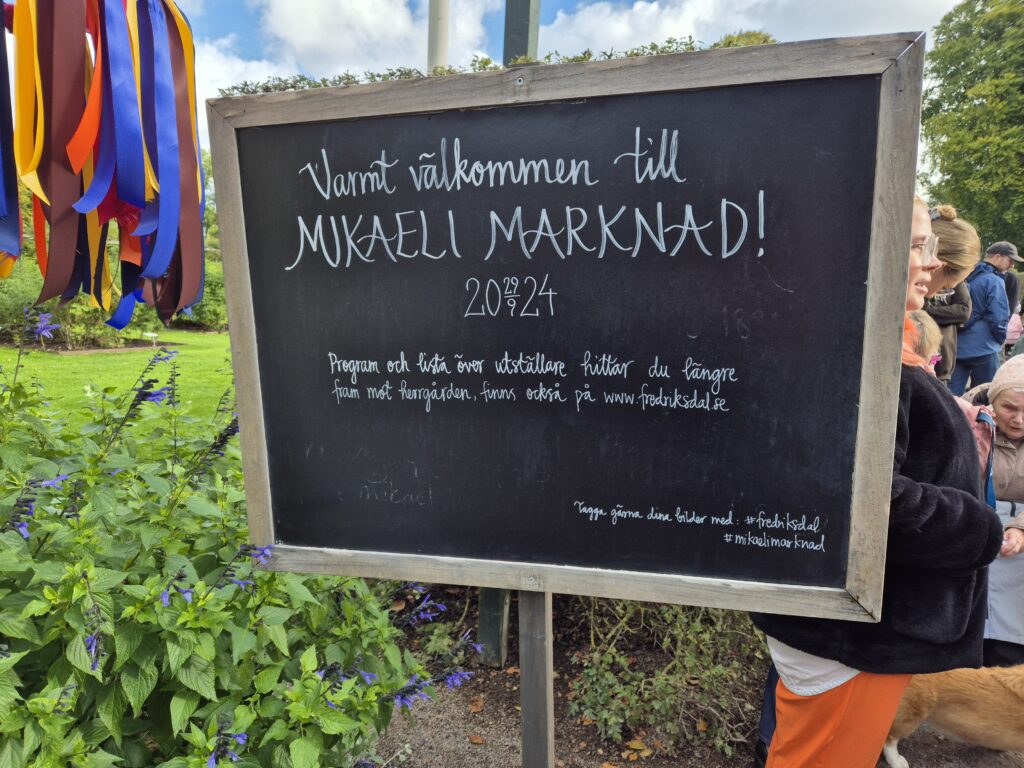 Varmt välkommen till
MIKAELI MARKNAD!
20 29/9 24
Program och lista över utställare hittar du längre
fram mot herrgården, finns också på www.fredriksdal.se
mikael
Tagga gärna dina bilder med: #fredriksdal
#mikaelimarknad